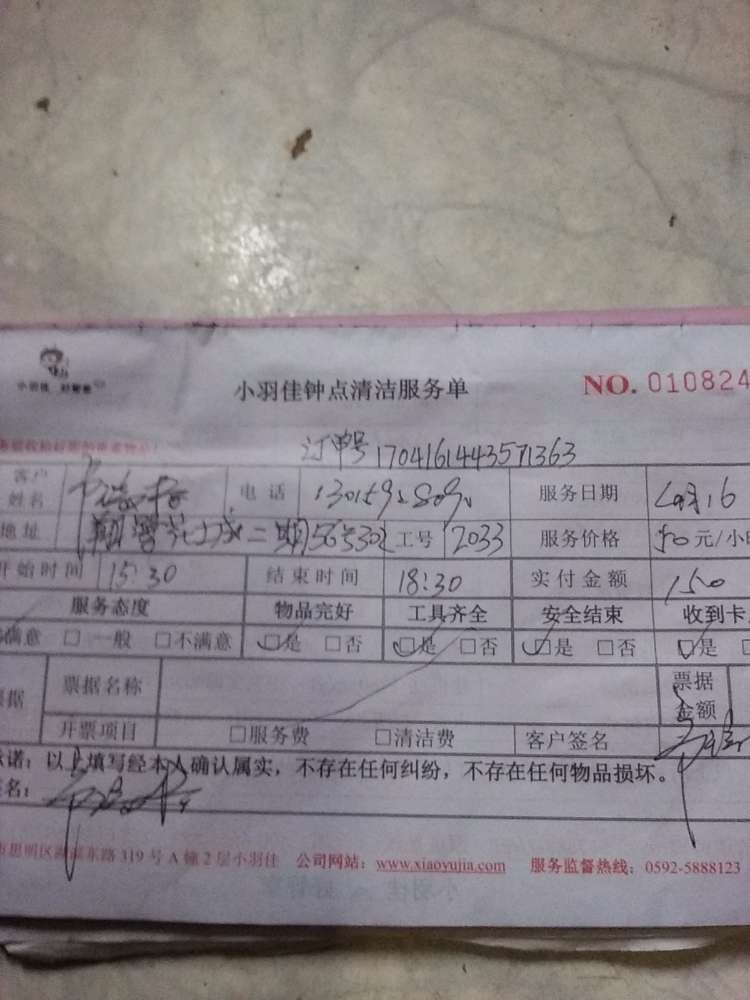 小羽佳 好管家
小羽佳钟点清洁服务单 NO. 010824
订单号 1704161443571363
客户姓名 电话 服务日期 4月16
地址 二期 工号 2033 服务价格 50元/小
开始时间 15:30 结束时间 18:30 实付金额 150
服务态度 物品完好 工具齐全 安全结束 收到卡
满意 □ 一般 □不满意 □是 □否 □是 □否 □是 □否 □是
据 票据名称 票据金额
开票项目 □服务费 □清洁费 客户签名
诺：以上填写经本人确认属实，不存在任何纠纷，不存在任何物品损坏。
名：
市思明区湖滨东路 319 号 A 幢 2 层小羽佳 公司网站：www.xiaoyujia.com 服务监督热线：0592-5888123